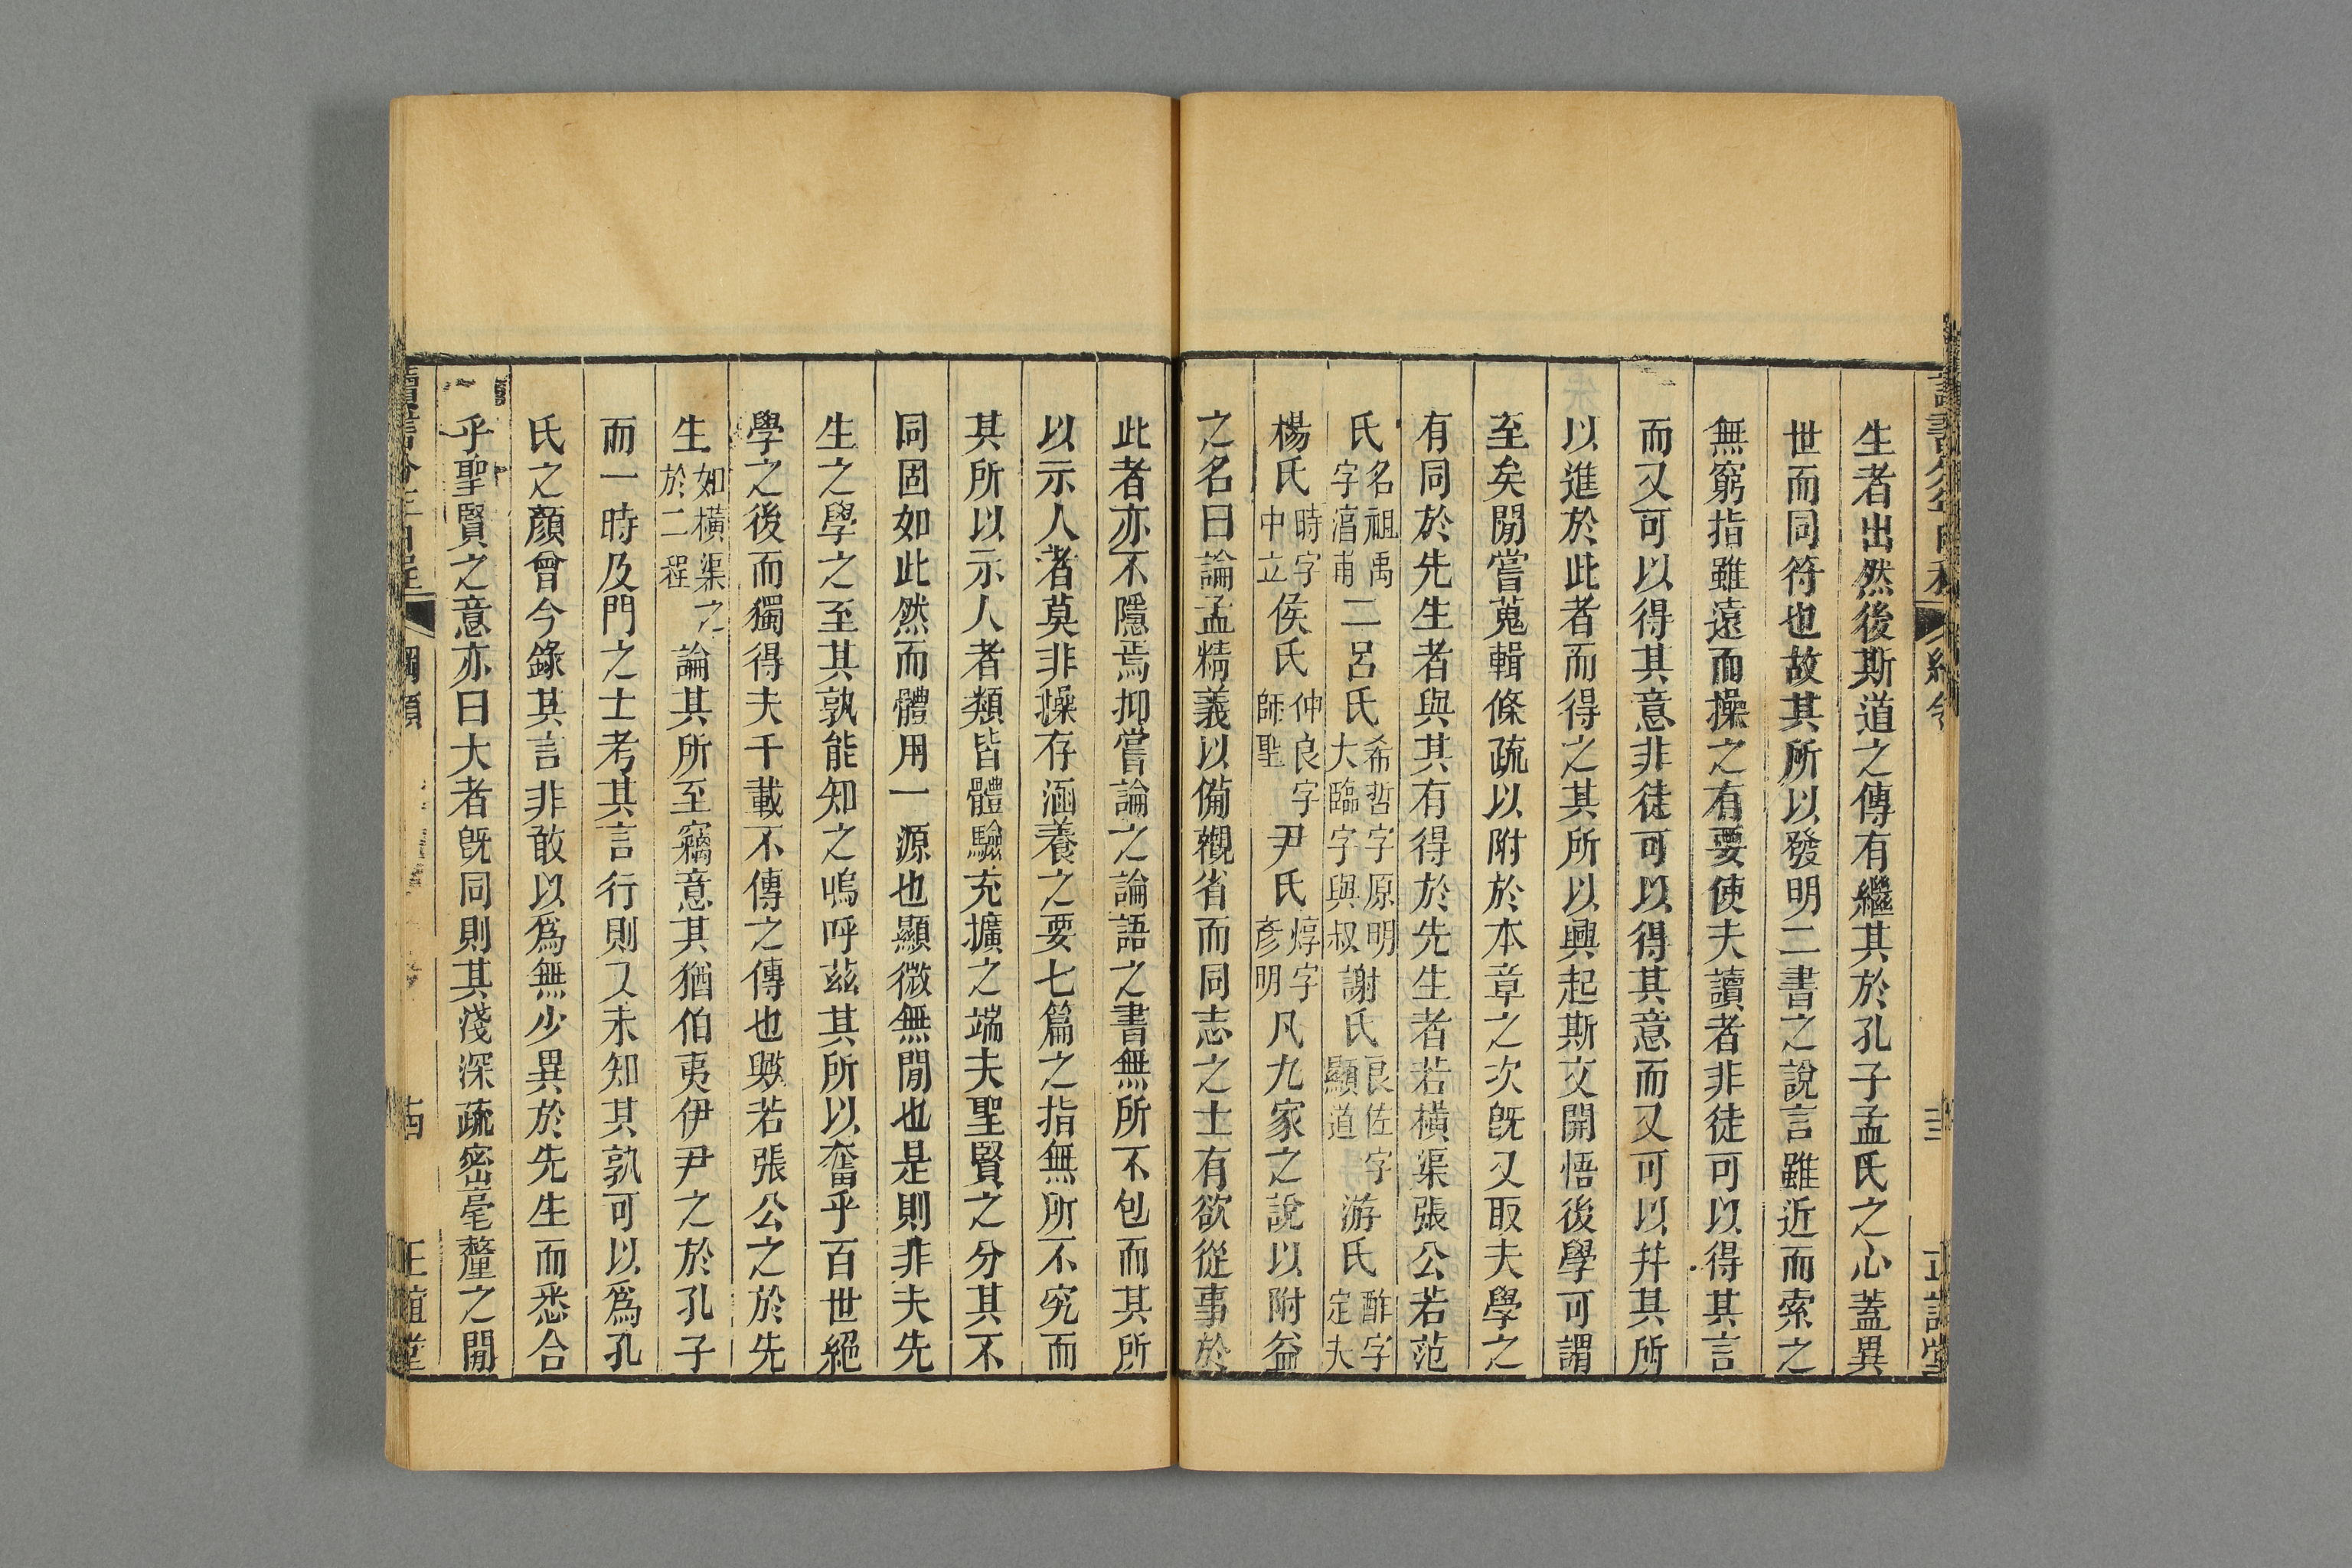 生者出然後斯道之傳有繼其於孔子孟氏之心蓋異
世而同符也故其所以發明二書之說言雖近而索之
無窮指雖遠而操之有要使夫讀者非徒可以得其言
而又可以得其意非徒可以得其意而又可以幷其所
以進於此者而得之其所以興起斯文開悟後學可謂
至矣閒嘗蒐輯條疏以附於本章之次旣又取夫學之
有同於先生者與其有得於先生者若橫渠張公若范
氏名祖禹字淳甫二呂氏希哲字原明大臨字與叔謝氏良佐字顯道游氏酢字定夫
楊氏時字中立侯氏仲良字師聖尹氏焞字彥明凡九家之說以附益
之名曰論孟精義以備觀省而同志之士有欲從事於
此者亦不隱焉抑嘗論之論語之書無所不包而其所
以示人者莫非操存涵養之要七篇之指無所不究而
其所以示人者類皆體驗充擴之端夫聖賢之分其不
同固如此然而體用一源也顯微無閒也是則非夫先
生之學之至其孰能知之嗚呼茲其所以奮乎百世絕
學之後而獨得夫千載不傳之傳也歟若張公之於先
生如橫渠之於二程論其所至竊意其猶伯夷伊尹之於孔子
而一時及門之士考其言行則又未知其孰可以爲孔
氏之顏曾今錄其言非敢以爲無少異於先生而悉合
乎聖賢之意亦曰大者旣同則其淺深疏密毫釐之閒
讀書分年日程 綱領 正誼堂